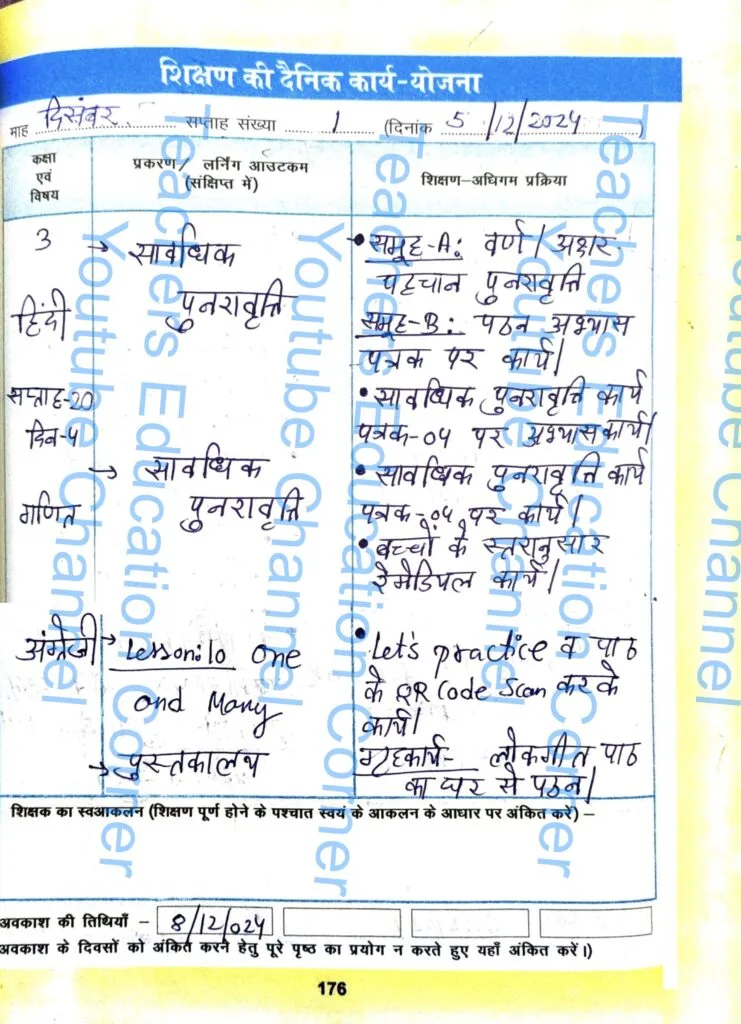 शिक्षण की दैनिक कार्य-योजना
माह दिसंबर सप्ताह संख्या 1 (दिनांक 5/12/2024)
कक्षा एवं विषय
प्रकरण/ लर्निंग आउटकम (संक्षिप्त में)
शिक्षण-अधिगम प्रक्रिया
3
हिंदी
सप्ताह-20
दिन-4
→ सावधिक
पुनरावृत्ति
• समूह-A: वर्ण/अक्षर
पहचान पुनरावृत्ति
समूह-B: पठन अभ्यास
पत्रक पर कार्य।
• सावधिक पुनरावृत्ति कार्य
पत्रक-04 पर अभ्यास कार्य।
गणित
→ सावधिक
पुनरावृत्ति
• सावधिक पुनरावृत्ति कार्य
पत्रक-04 पर कार्य।
• बच्चों के स्तरानुसार
रेमेडियल कार्य।
अंग्रेजी
→ Lesson:10 One
and Many
→ पुस्तकालय
• Let's practice व पाठ
के QR Code Scan करके
कार्य।
गृहकार्य- लोकगीत पाठ
का घर से पठन।
शिक्षक का स्वआकलन (शिक्षण पूर्ण होने के पश्चात स्वयं के आकलन के आधार पर अंकित करें) –
अवकाश की तिथियाँ – 8/12/024
अवकाश के दिवसों को अंकित करने हेतु पूरे पृष्ठ का प्रयोग न करते हुए यहाँ अंकित करें।)
176
Teachers Education Corner
Youtube Channel
Teachers Education Corner
Youtube Channel
Teachers Education Corner
Youtube Channel